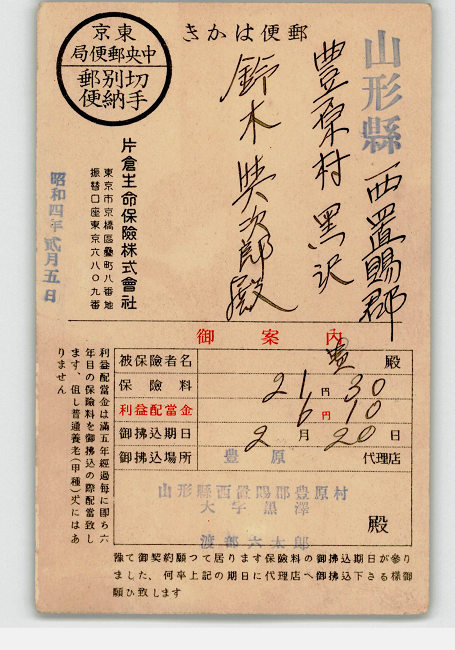 郵便はかき
東京
中央郵便局
切手別納郵便
山形縣 西置賜郡
豊原村 黒沢
鈴木奘次郎殿
片倉生命保險株式會社
東京市京橋區疊町八番地
振替口座東京六八〇九番
昭和四年貳月五日
御案内
被保險者名 殿
保險料 21円30
利益配當金 6円10
御拂込期日 2月20日
御拂込場所 豊原 代理店
山形縣西置賜郡豊原村
大字黒澤
渡部六太郎 殿
利益配當金は滿五年經過每に卽ち六
年目の保險料を御拂込の際配當致し
ます、但し普通養老(甲種)丈にはあ
りません
豫て御契約願つて居ります保險料の御拂込期日が參り
ましたから何卒上記の期日に代理店へ御拂込下さる樣御
願ひ致します